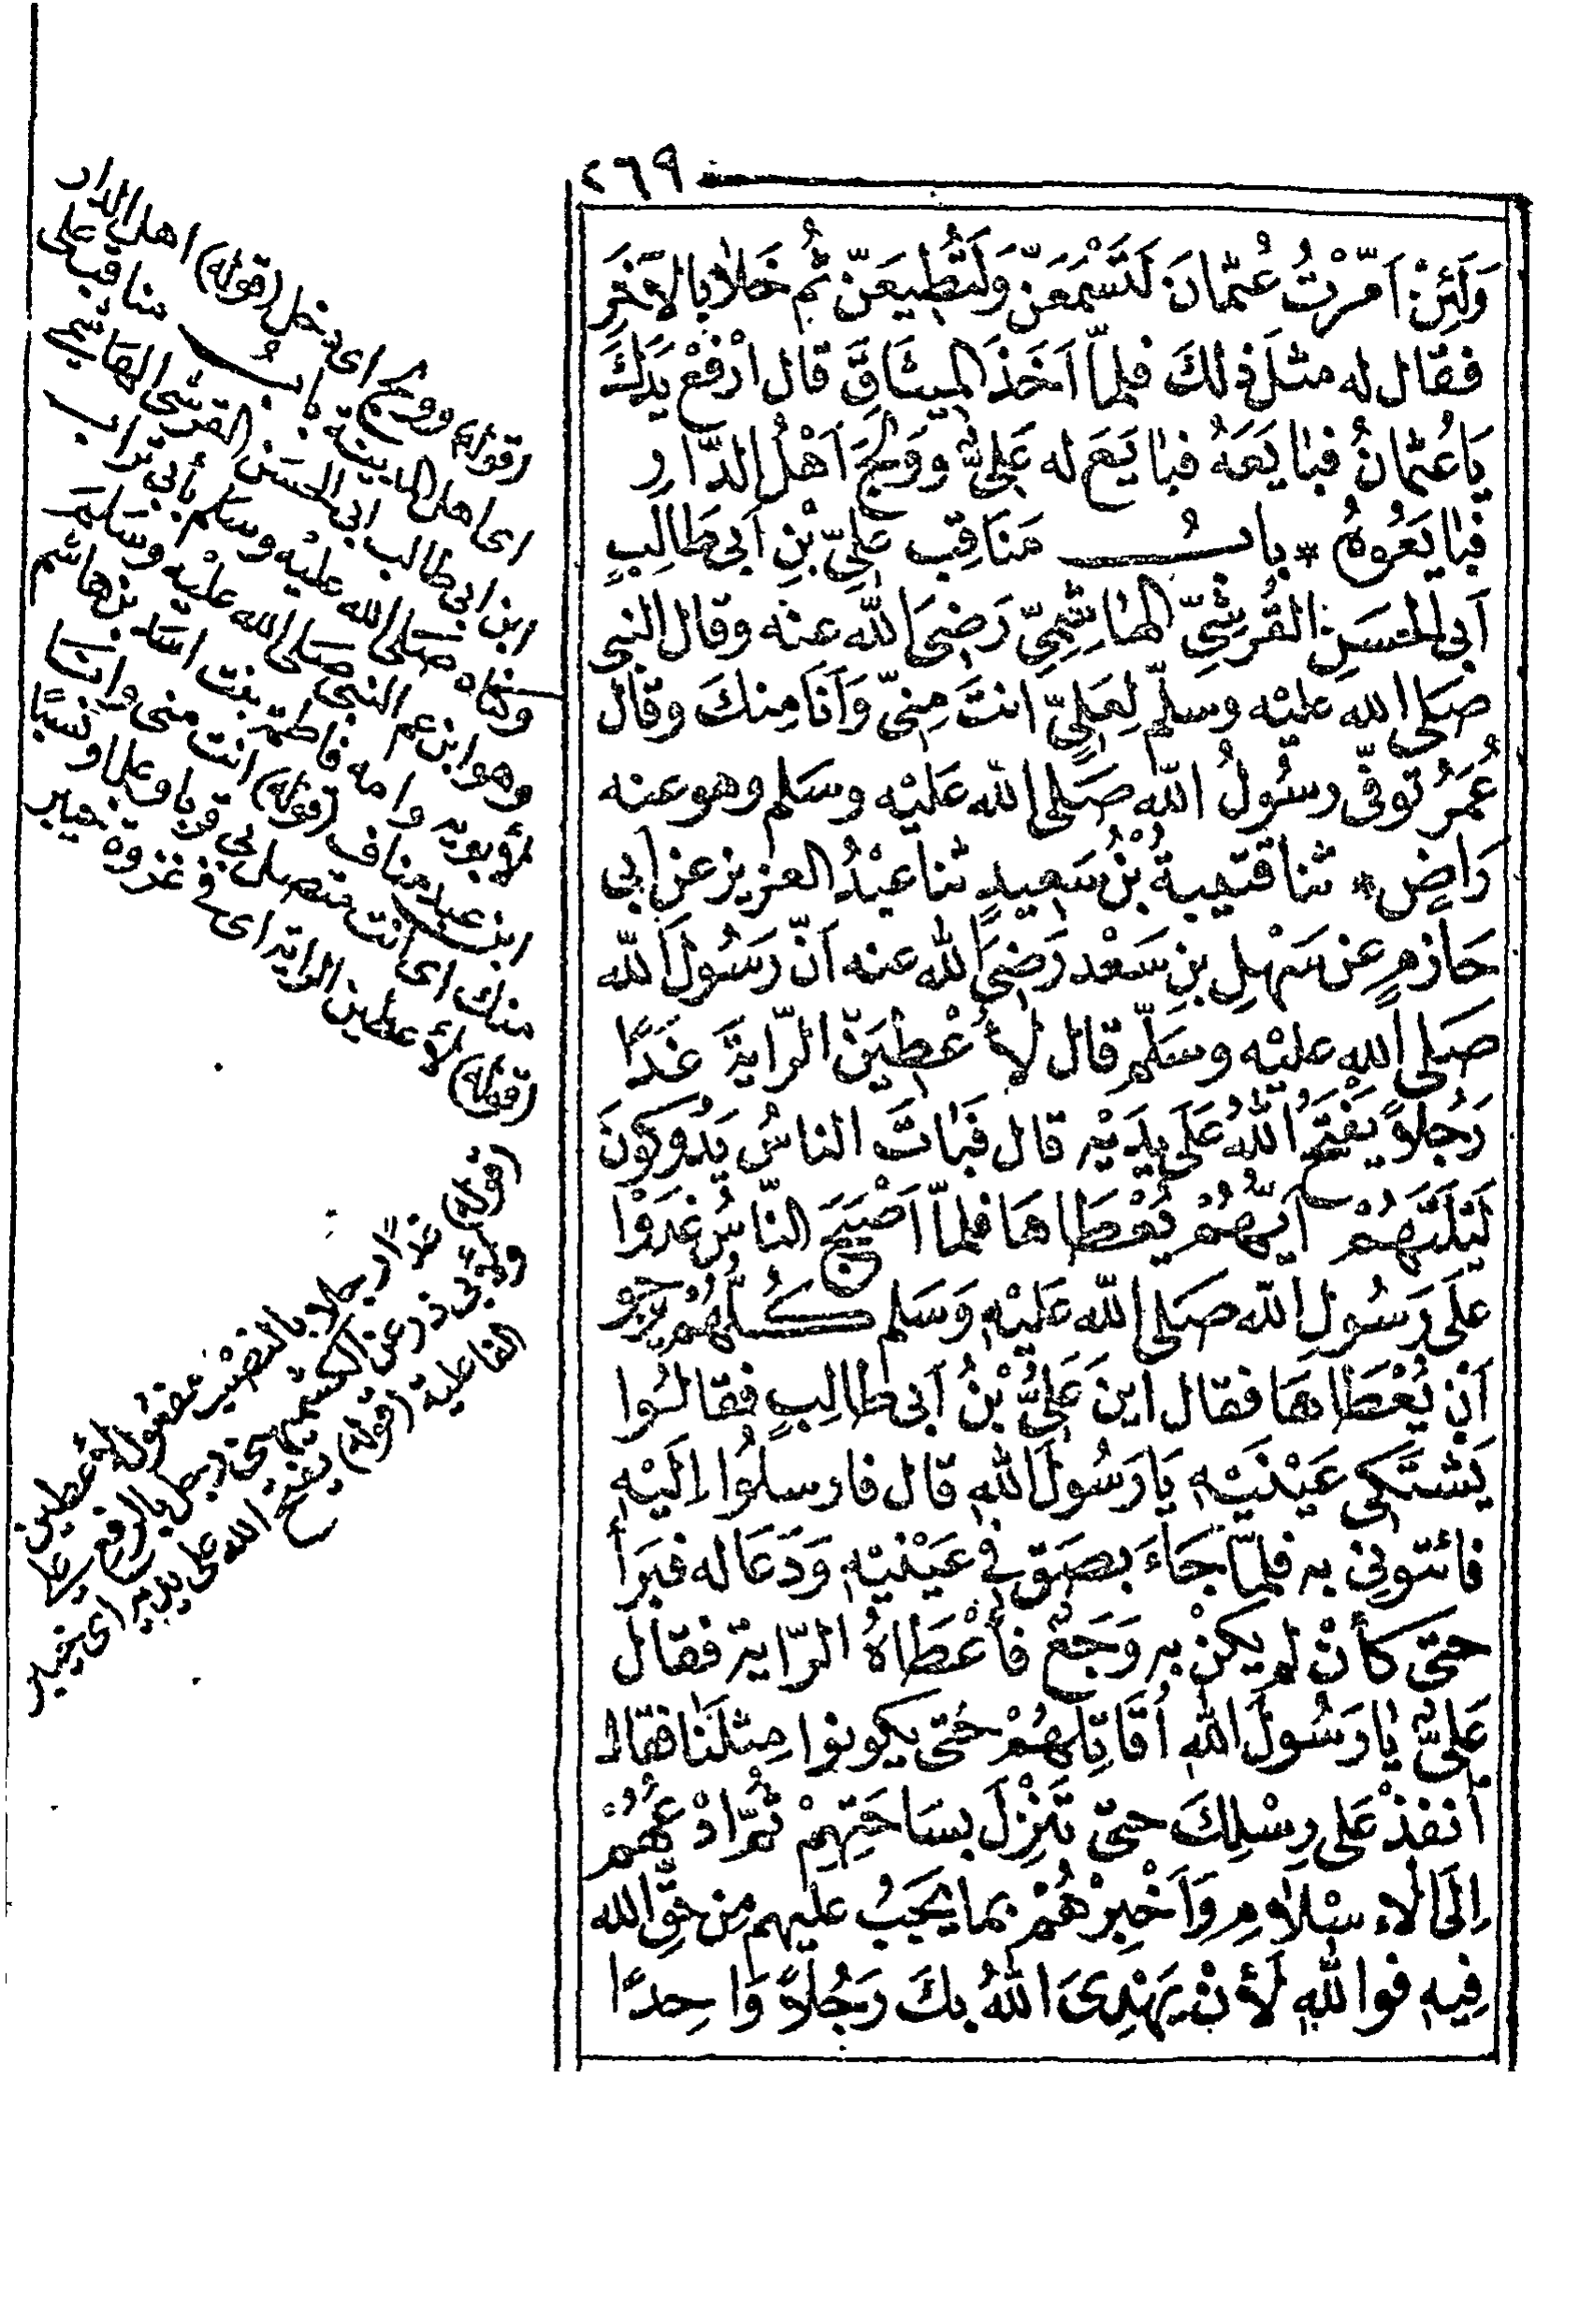 ٢٦٩
وَلَئِنْ اَمَّرْتُ عُثْمَانَ لَتَسْمَعَنَّ وَلَتُطِيعَنَّ ثُمَّ خَلَا بِالْآخَرِ
فقال له مثلَ ذلكَ فلمّا اَخَذَ الميثَاقَ قال ارْفَعْ يَدَكَ
يَا عُثمانُ فبَايَعَهُ فبَايَعَ له عَلِىٌّ وَوَلَجَ اَهْلُ الدَّارِ
فبَايَعُوهُ * بابُ مَنَاقِب عَلِىِّ بْنِ اَبى طَالِبٍ
اَبى الحَسَنِ القُرَشِىِّ الهَاشِمِىِّ رَضِىَ اللّٰه عنه وقال النبى
صَلى الله عليْه وسلّم لِعَلِىٍّ انتَ مِنِّى وَاَنَا مِنكَ وقال
عُمَرُ توفّى رسُولُ اللّه صَلى اللّه عَلَيْه وسَلم وهو عنه
رَاضٍ * ثنا قتيبةُ بْنُ سَعِيدٍ ثنا عبْدُ العزيز عن ابى
حَازمٍ عن سَهْلِ بنِ سَعْد رَضِىَ اللّٰه عنه اَنّ رَسُولَ اللّه
صَلى اللهِ عليْه وسَلّم قال لأُعْطِيَنّ الرّايةَ غَدًا
رَجُلاً يَفْتَحُ اللّٰهُ عَلَى يدَيْهِ قال فبَاتَ الناسُ يَدُوكونَ
لَيْلَتَهُمْ ايّهُمْ يُعْطَاهَا فلمّا اَصْبَحَ النّاسُ غَدَوْا
علَى رَسُولِ اللّه صَلى اللّه عَلَيْهِ وَسَلم كُلُّهُمْ يَرجو
اَنْ يُعْطَاهَا فقال اينَ عَلِىُّ بْنُ اَبى طَالِبٍ فقالُوا
يَشْتَكى عَيْنَيْهِ يَا رَسُولَ اللّٰهِ قال فارسلُوا اِلَيْهِ
فائتونِى به فلمّا جَاءَ بصَقَ فى عَيْنيْهِ وَدَعَا له فبَرَأ
حتى كأنْ لم يكنْ به وَجَعٌ فأَعْطَاهُ الرّاية فقال
عَلِىٌّ يا رَسُولَ اللّٰهِ اُقَاتِلُهُمْ حَتى يكونوا مِثلَنَا فقال
اُنفذْ عَلى رِسْلِكَ حتى تَنْزِلَ بسَاحَتِهِمْ ثمّ ادْعُهُمْ
اِلَى الاءسْلَامِ وَاَخْبِرْهُمْ بما يَجَبُ عليهم مِن حَقِّ اللّه
فِيهِ فوا للّٰهِ لَأَنْ يَهْدِىَ اللّٰهُ بكَ رَجُلاً وَاحِدًا
(قوله) وولج اى دخل (قوله) اهل الدار
اى اهل المدينة بابُ مناقب على
ابن ابى طالب ابى الحسَن القرشى الهاشمى
وكناه صَلى الله عليْه وسَلم بأبى تراب
وهو ابن عم النبى صَلى الله عليْه وسَلم
لأبويه وامه فاطمة بنت اسَد بن هاشم
ابن عبد مناف (قوله) انت منى وانا
منك اى انت متصل بى قربا وعلما ونسبًا
(قوله) لأعطين الراية اى فى غزوة خيبر
(قوله) غدًا رجلا بالنصْب مفعول لأعطين
ولأبى ذر عن الكشميهنى رجل بالرفع على
الفاعلية (قوله) يفتح الله على يديه اى خيبر